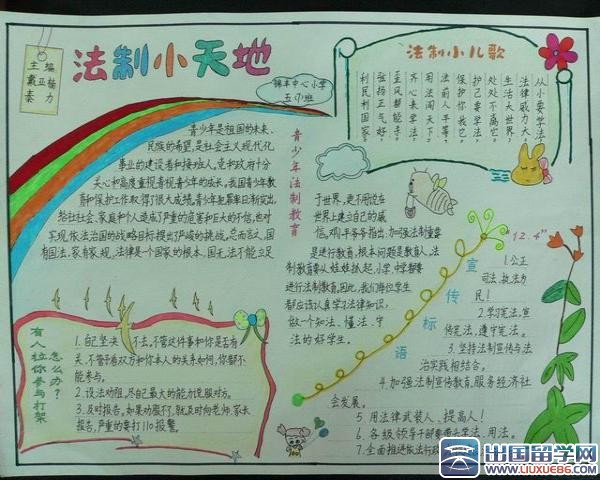 主编
戴亚杨
秦力
法制小天地
锦丰中心小学
五(1)班
法制小儿歌
从小要学法,
法律威力大。
生活大世界,
处处不离它。
护己要学法,
保护你我它。
法前人平等,
用法闯天下。
齐心来学法,
歪风都能刹。
弘扬正气好,
利民利国家。
青少年是祖国的未来、
民族的希望,是社会主义现代化
事业的建设者和接班人。党和政府十分
关心和高度重视青少年的成长。我国青少年教
育和保护工作取得了很大成绩。青少年犯罪日利突出,
给社社会、家庭和个人造成了严重的危害和巨大的不信,也对
实现依法治国的战略目标提出了严峻的挑战。总而言之,国
有国法,家有家规。法律是一个国家的根本。国无法不能立足
青少年法制教育
于世界,更不用说在
世界上建立自己的威
信。邓爷爷指出:加强法制重要
是进行教育,根本问题是教育人。法
制教育要从娃娃抓起,小学,中学都要
进行法制教育。因此,我们每位学生
都应该认真学习法律知识,
做一个知法、懂法、守
法的好学生。
有人拉你参与打架
怎么办?
1.自己坚决不去,不管这件事和你是否有
关,不管看双方和你本人的关系如何,你都不
能参与。
2.设法劝阻,尽自己最大的能力说服对方。
3.及时报告。如果劝服不了,就及时向老师、家长
报告,严重的要打110报警。
宣传标语
"12.4"
1.公正
司法,执法为
民!
2.学习宪法,宣
传宪法,遵守宪法。
3.坚持法制宣传与法
治实践相结合。
4.加强法制宣传教育,服务经济社
会发展。
5.用法律武装人、提高人!
6.各级领导干部要带头学法、用法。
7.全面推进依法行政
出国留学网
WWW.LIUXUE86.COM